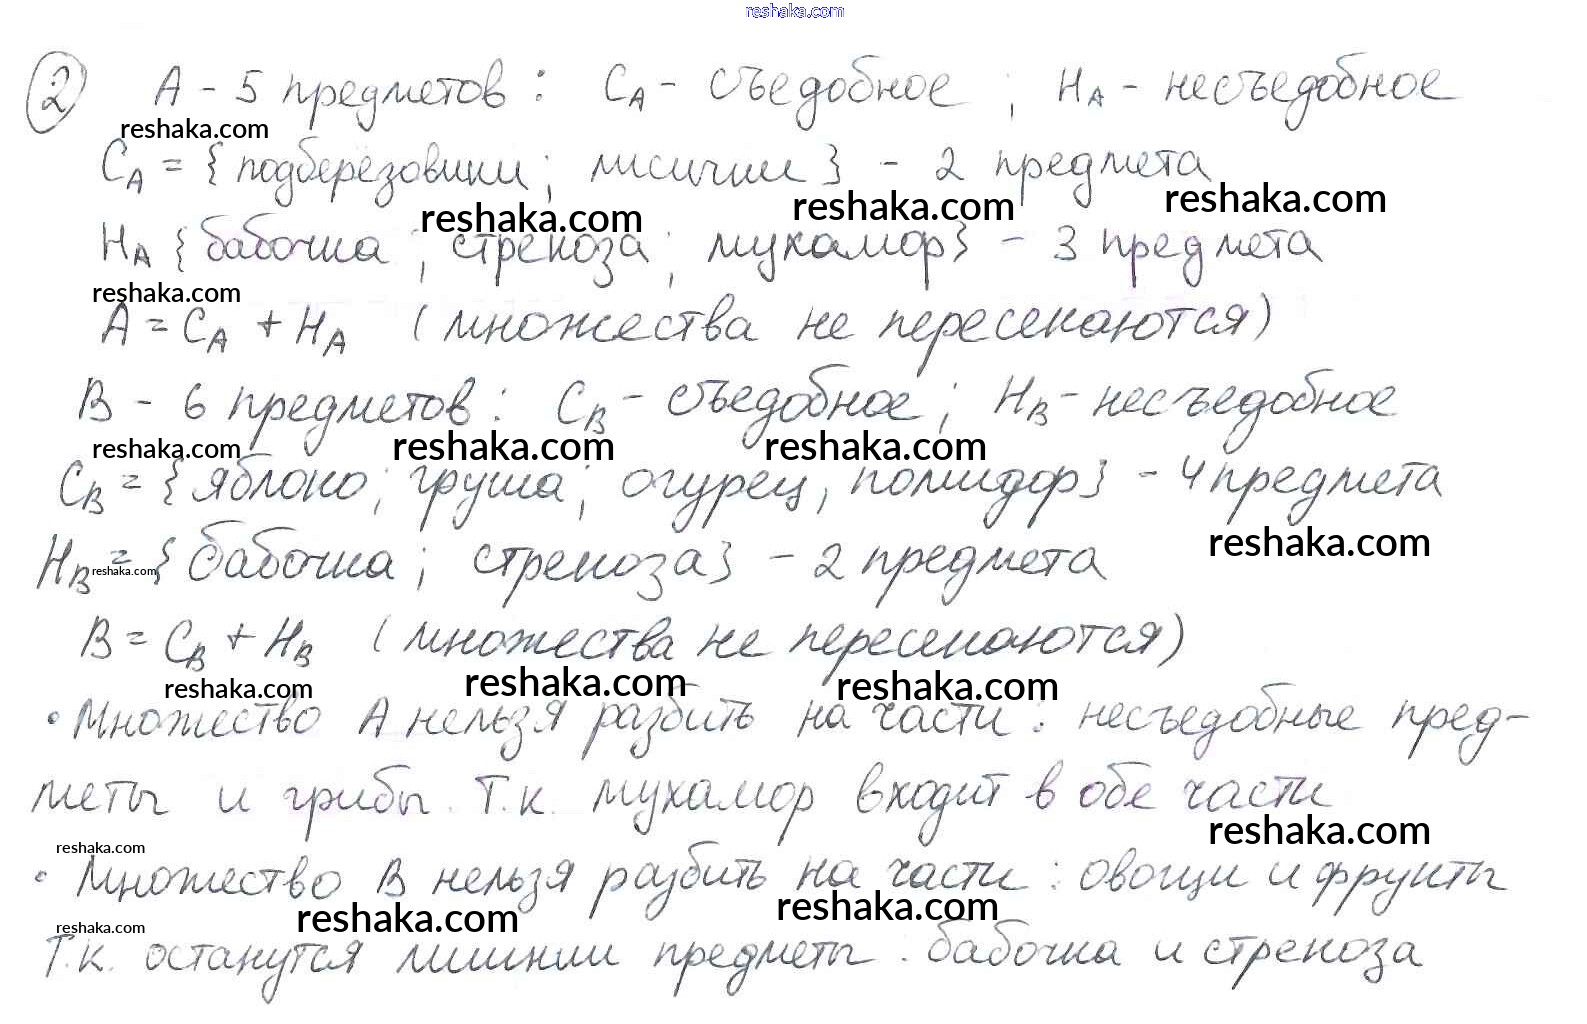 reshaka.com
2 А - 5 предметов : СА - съедобное ; НА - несъедобное
reshaka.com
СА = { подберёзовики ; лисички } - 2 предмета
reshaka.com reshaka.com reshaka.com
НА { бабочка ; стрекоза ; мухамор } - 3 предмета
reshaka.com
А = СА + НА ( множества не пересекаются )
В - 6 предметов : СВ - съедобное ; НВ - несъедобное
reshaka.com reshaka.com reshaka.com
СВ = { яблоко ; груша ; огурец , помидор } - 4 предмета
reshaka.com
НВ = { бабочка ; стрекоза } - 2 предмета
reshaka.com
В = СВ + НВ ( множества не пересекаются )
reshaka.com reshaka.com reshaka.com
• Множество А нельзя разбить на части : несъедобные пред-
меты и грибы . Т.к. мухамор входит в обе части
reshaka.com reshaka.com
• Множество В нельзя разбить на части : овощи и фрукты
reshaka.com reshaka.com reshaka.com
Т.к. останутся лишнии предметы . бабочка и стрекоза